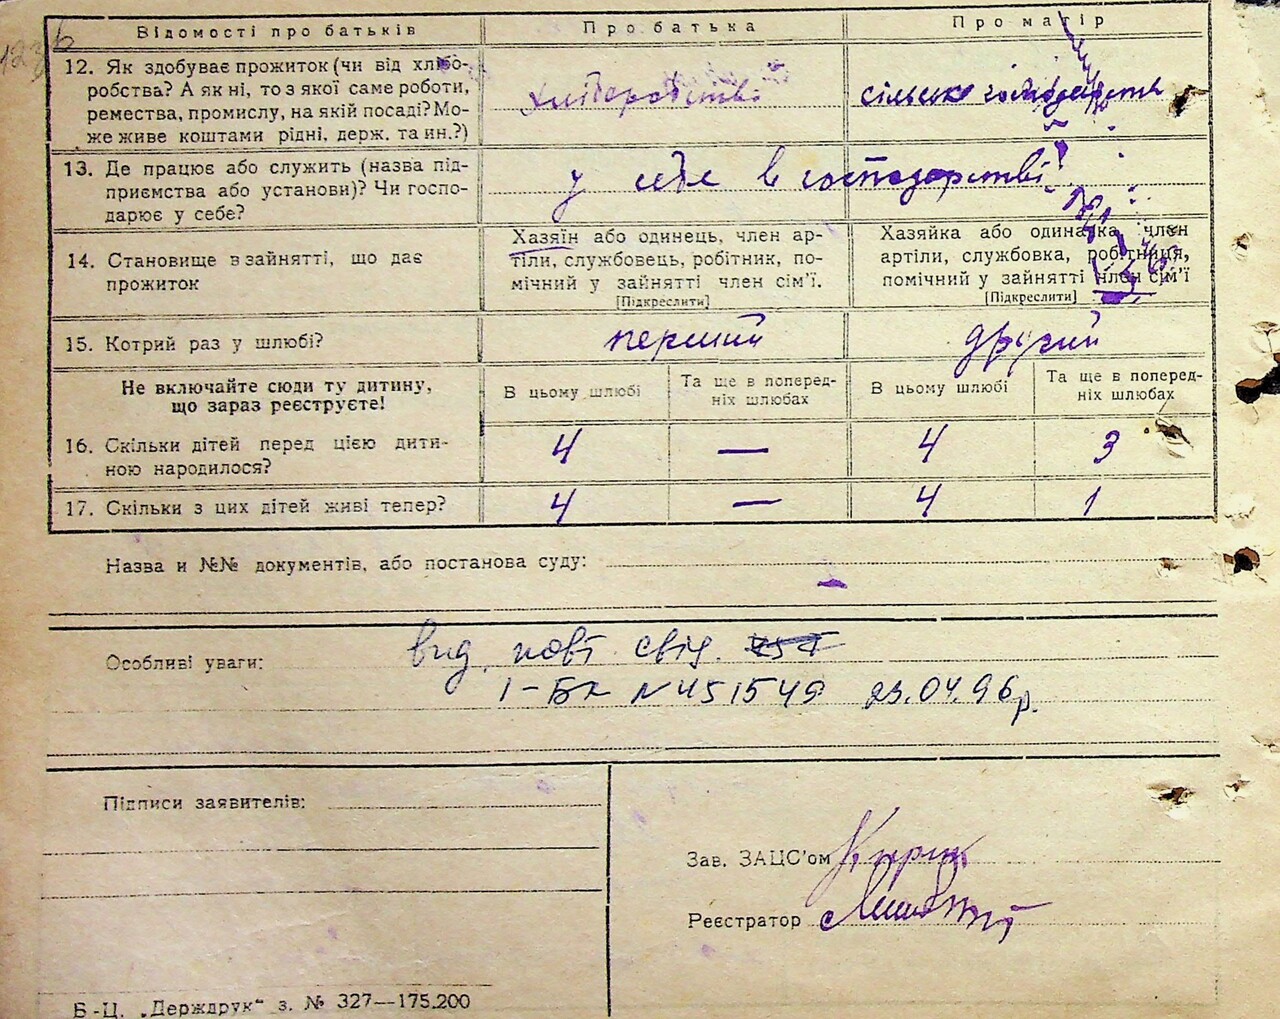 123б
Відомості про батьків
Про батька
Про матір
12. Як здобуває прожиток (чи від хлібо-
робства? А як ні, то з якої саме роботи,
ремества, промислу, на якій посаді? Мо-
же живе коштами рідні, держ. та ин.?)
хліборобство
сільське господарств
13. Де працює або служить (назва під-
приємства або установи)? Чи госпо-
дарює у себе?
у себе в господарстві
14. Становище в зайнятті, що дає
прожиток
Хазяїн або одинець, член ар-
тіли, службовець, робітник, по-
мічний у зайнятті член сім'ї.
[Підкреслити]
Хазяйка або одиначка, член
артіли, службовка, робітниця,
помічний у зайнятті член сім'ї
[Підкреслити]
15. Котрий раз у шлюбі?
перший
другий
Не включайте сюди ту дитину,
що зараз реєструєте!
В цьому шлюбі
Та ще в поперед-
ніх шлюбах
В цьому шлюбі
Та ще в поперед-
ніх шлюбах
16. Скільки дітей перед цією дити-
ною народилося?
4 — 4 3
17. Скільки з цих дітей живі тепер?
4 — 4 1
Назва и №№ документів, або постанова суду:
Особливі уваги:
вид. нові свід.
І-БК N 451549 23.04.96р.
Підписи заявителів:
Зав. ЗАЦС'ом
Реєстратор
Б-Ц. „Держдрук“ з. № 327—175.200